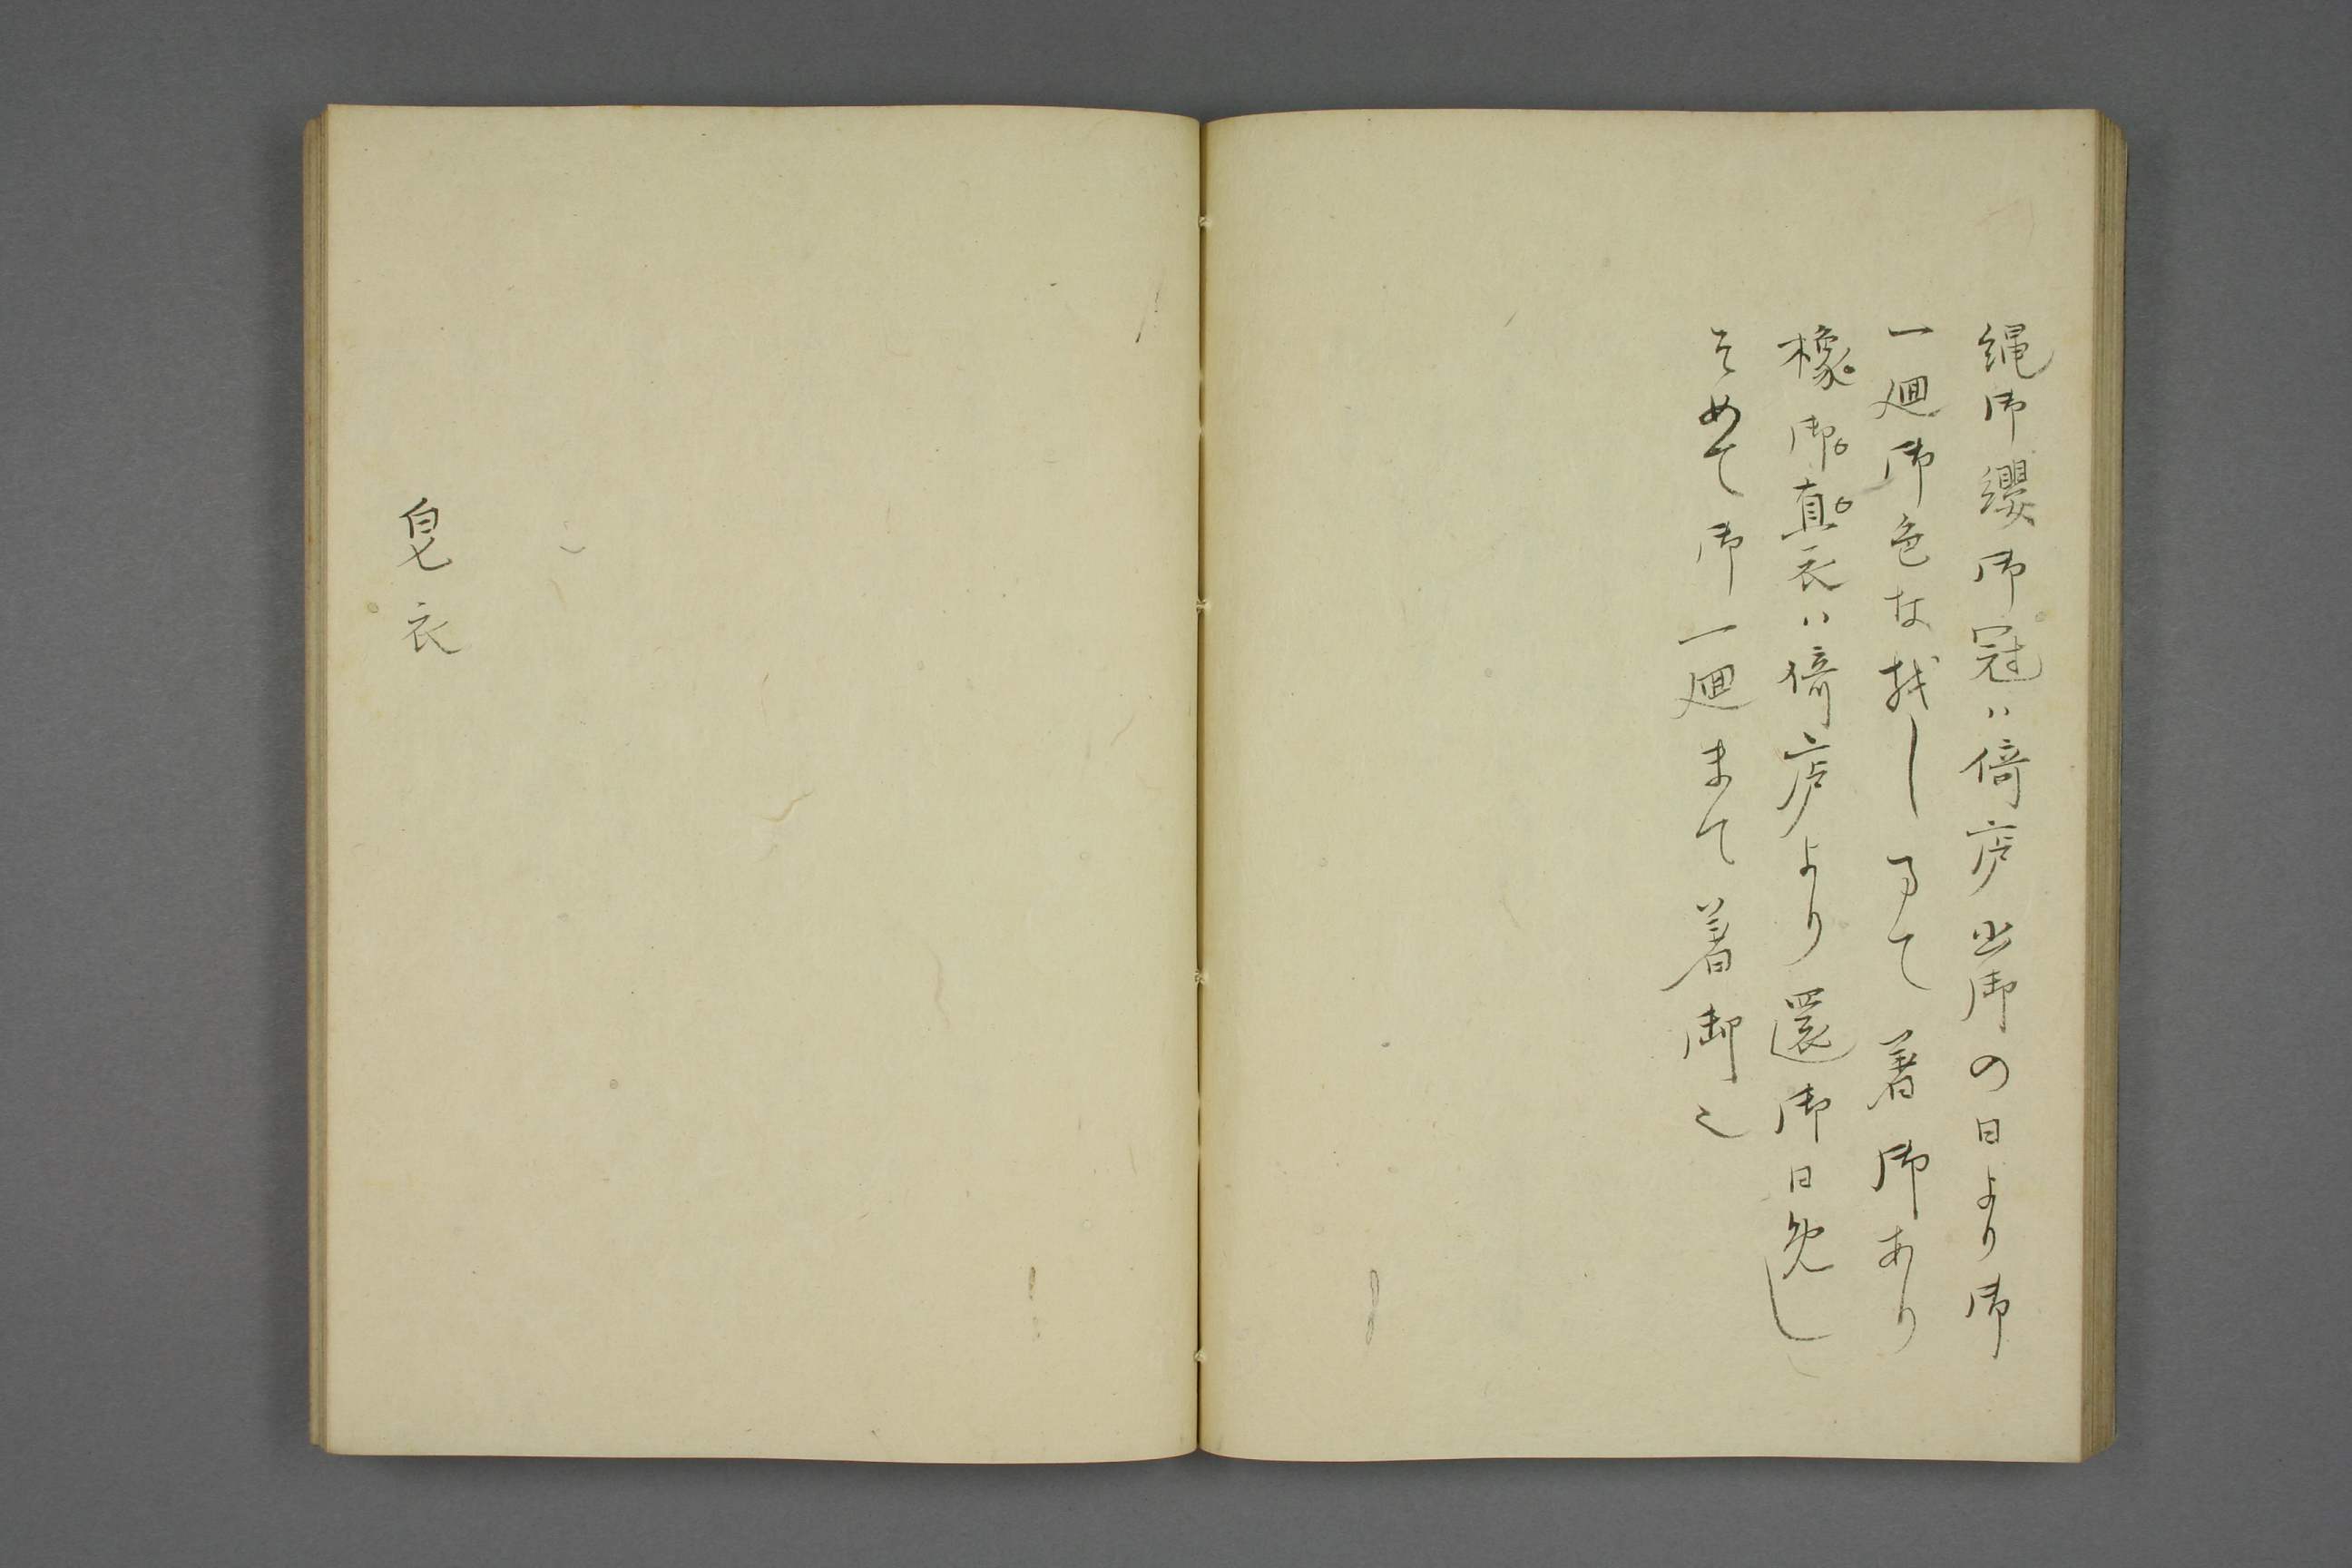 縄御纓御冠ハ倚庐出御の日より御
一廻御色なをしまて着御あり
橡御直衣ハ倚庐より還御日晩し
そめて御一廻まて着御之
皂衣